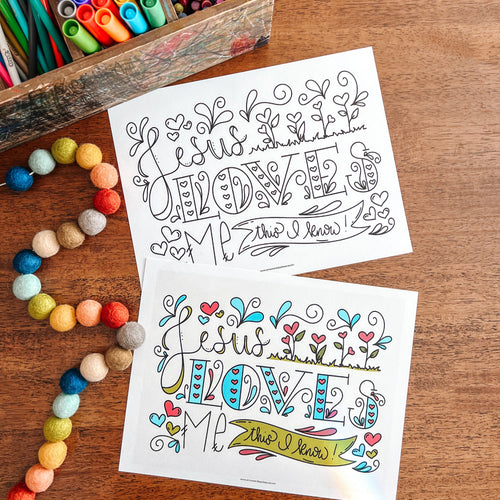 Jesus
LOVES
Me
this I know!
Jesus
LOVES
Me
this I know!